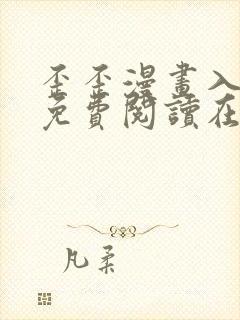 歪歪漫畫入
免費閱讀在
凡柔